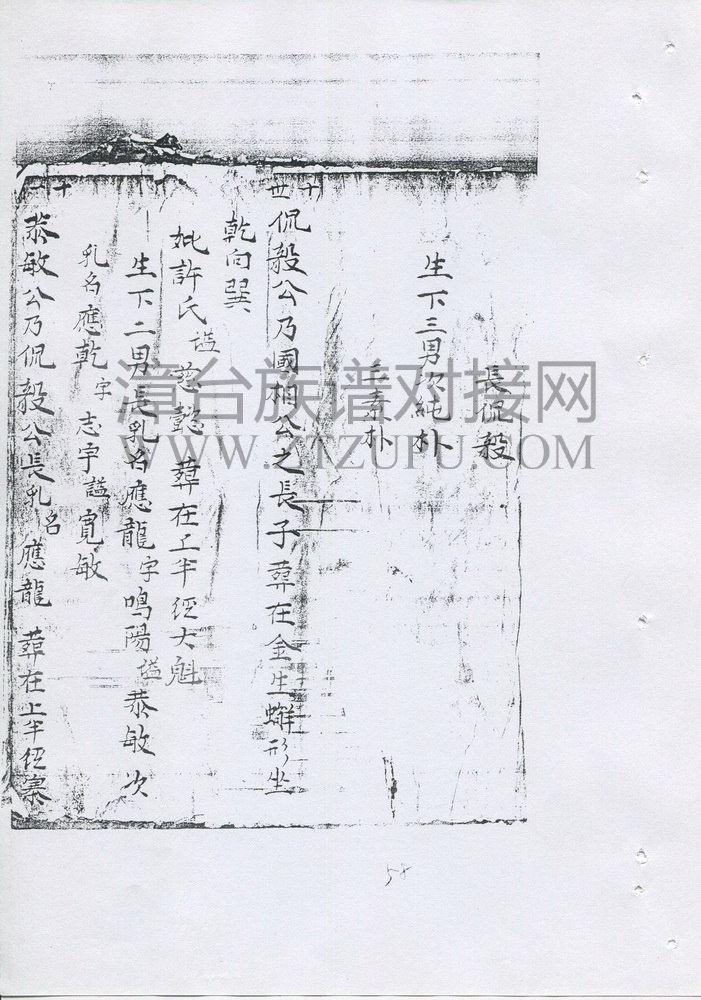 長侃毅
生下三男次純朴
三素朴
十世
侃毅公乃國相公之長子葬在金生蠏形坐
乾向巽
妣許氏諡慈懿葬在上半徑大魁
生下二男長乳名應龍字鳴陽諡恭敏次
乳名應乾字志宇諡寬敏
十一
恭敏公乃侃毅公長乳名應龍葬在上半徑寨
漳台族谱对接网
WWW.ZTZUPU.COM
58